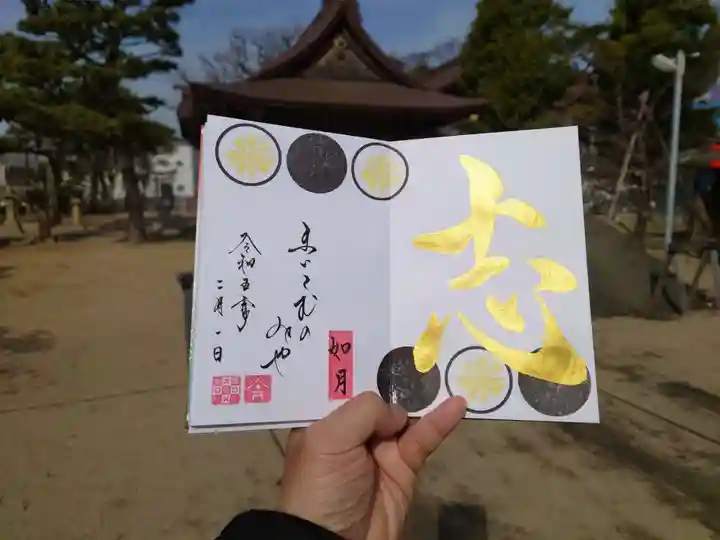 志
まいこむの
みや
如月
令和五年
二月一日